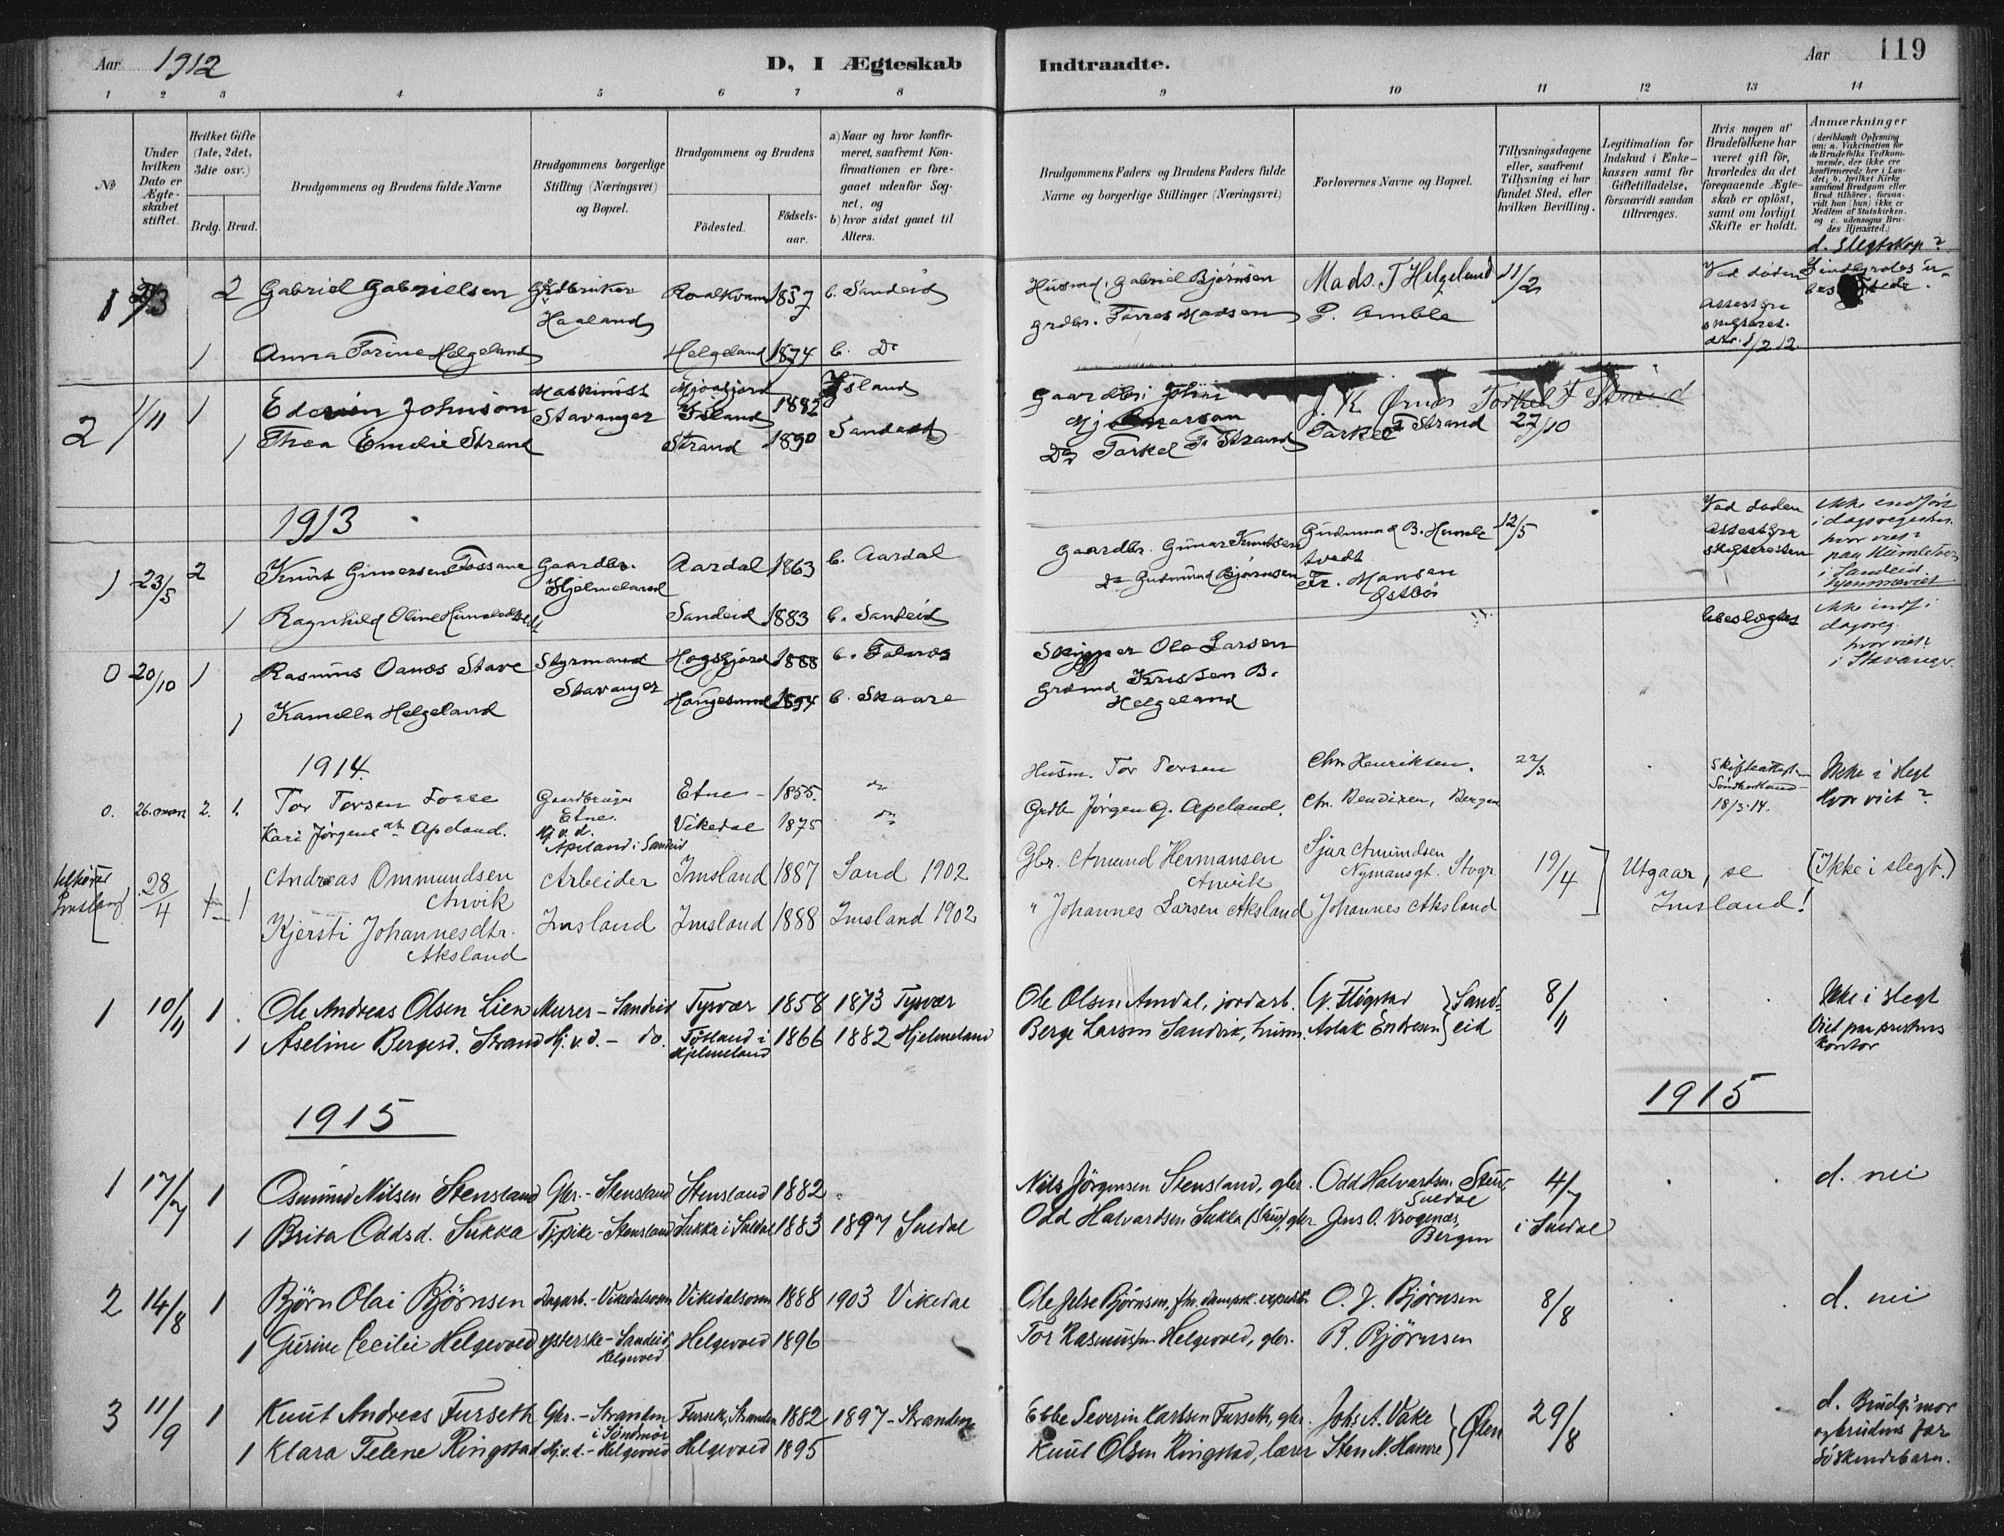 Aar 1912 D, I Ægteskab
1 2 3 4 5 6 7 8
No
Under hvilken Dato er Ægteskabet stiftet.
Hvilket Gifte (1ste, 2det, 3die osv.)
Brdg. Brud.
Brudgommens og Brudens fulde Navne
Brudgommens borgerlige Stilling (Næringsvei) og Bopæl.
Brudgommens og Brudens
Fødested. Fødselsaar.
a) Naar og hvor konfirmeret, saafremt Konfirmationen er foregaaet udenfor Sognet, og
b) hvor sidst gaaet til Alters.
1 2 Gabriel Gabrielsen Grdbruker 1857 b. Sandeid
Haaland
1 Anna Torine Helgeland Helgeland 1874 b. Do
2 1/11 1 Edevin Johnson Maskinist Mjoafjord Island
Stavanger Island 1882
1 Thea Emelie Strand Strand 1890 Sandeid
1913
1 23/5 2 Knut Gunersen Fossane Gaardbr. Aardal 1863 b. Aardal
Hjelmeland
1 Ragnhild Oline Sandeid 1883 b. Sandeid
0 20/10 1 Rasmus Oanæs Stave Styrmand Høgsfjord 1888 b. Falnæs
Stavanger
1 Kamella Helgeland Haugesund 1894 b. Skaare
1914
0. 26. mars 2. 1. Tor Torsen Gaardbruger Etne 1855.
Etne
Kari Jørgensdtr Apeland. Hj. v. d. Vikedal 1875
Apeland i Sandeid
Imsland
28/4 1 1 Andreas Ommundsen Arbeider Imsland 1887 Sand 1902
Anvik
Kjersti Johannesdtr. Imsland Imsland 1888 Imsland 1902
Aksland
1 10/11 1 Ole Andreas Olsen Lien Murer - Sandeid Tysvær 1858 1873 Tysvær
1 Aseline Bergesd. Strand Hj. v. d. - do. Tøtland i Hjelmeland 1866 1882 Hjelmeland
1915
1 17/7 1 Osmund Nilsen Stensland Gbr. - Stensland Stensland 1882
1 Brita Oddsd. Sukka Tj. pike - Stensland Sukka i Suldal 1883 1897 Suldal
2 14/8 1 Bjørn Olai Bjørnsen Dagarb. - Vikedalsosen Vikedalsosen 1888 1903 Vikedal
1 Gurine Cecilie Helgevold Sandeid, Helgevold Helgevold 1896
3 11/9 1 Knut Andreas Furseth Gbr. - Stranden i Søndmør Furseth, Stranden 1882 1897 - Stranden
1 Klara Telene Ringstad Hj. v. d. - Helgevold Helgevold 1895
Indtraadte. Aar 119
9 10 11 12 13 14
Brudgommens Faders og Brudens Faders fulde Navne og borgerlige Stillinger (Næringsvei)
Forlovernes Navne og Bopæl.
Tillysningsdagene eller, saafremt Tillysning ei har fundet Sted, efter hvilken Bevilling.
Legitimation for Indskud i Enkekassen samt for Giftetilladelse, forsaavidt saadan tiltrænges.
Hvis nogen af Brudefolkene har været gift før, hvorledes da det foregaaende Ægteskab er opløst, samt om lovligt Skifte er holdt.
Anmærkninger
(deriblandt Oplysning om: a. Vakcination for de Brudefolks Vedkommende, der ikke ere konfirmerede her i Landet; b. hvilket Kirkesamfund Brudgom eller Brud tilhører, forsaavidt han (hun) ikke er Medlem af Statskirken. og c. udensogns Brudes Hjemsted.)
d. Slegtskap?
Husmd. Gabriel Bjørnsen Mads. T Helgeland 11/2 Ved døden
Grdbr. Tørres Madsen P. Amble
1/2 12.
Gaardbr. John
J. K. Ørnes Torkel T Strand
Do Torkel T. Strand Torkel T Strand 27/10
Gaardbr. Gunar Knutsen Gudmund B. Humletvedt 12/5 Ved døden
Do Gudmund Bjørnsen Fr. Monsen Østbø
Ikke indført i dagsregistr. hvor viet? paa Humletvet i Sandeid. hjemmeviet
Skipper Ole Larsen Ubeslegtet
Grdmd Knut Sen B. Helgeland
Ikke indf. i dagsreg. hvor viet i Stavanger
Husm. Tor Torsen Chr. Henriksen. 22/3. Skifteattest
18/3 14.
Ikke i slegt
Hvor viet?
Grdb. Jørgen G. Apeland. Chr. Bendixen, Bergen
Gbr. Amund Hermansen Anvik Sjur Amundsen Nymansgt. Stvgr. 19/4 Utgaar, se Imsland! (Ikke i slegt.)
" Johannes Larsen Aksland Johannes Aksland
Ole Olsen Amdal, jordarb. G. Fløgstad Sandeid 8/11 Ikke i slegt
Berge Larsen Sandvik, husm. Aslak Endresen
Viet paa prestens kontor
1915
Nils Jørgensen Stensland, gbr. Odd Halvardsen Suldal 4/7 d. nei
Odd Halvardsen Sukka, gbr. Jens O. Krogenæs, Bergen i Suldal
Ole Jelse Bjørnsen, fhv. dampsk. exped. O. J. Bjørnsen 8/8 d. nei
Tor Rasmussen Helgevold, gbr. R. Bjørnsen
Ebbe Severin Karlsen Furseth, gbr. Johs A. Vake Ølen 29/8
Knut Olsen Ringstad, lærer Sten N. Hamre
d. Brudg. mor og brudens far søskendebarn.